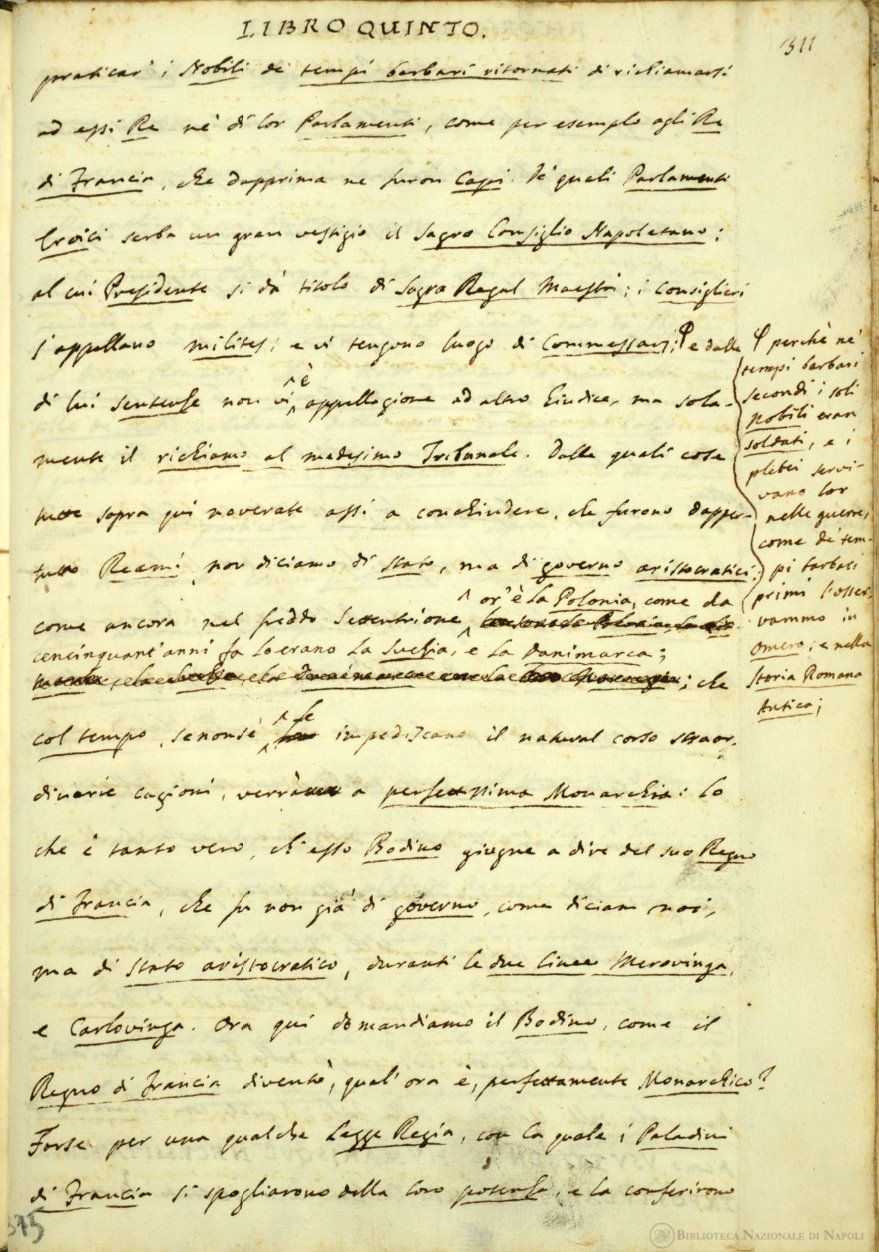 LIBRO QUINTO.
311
praticar i Nobili de' tempi barbari ritornati di richiamarsi
ad essi Re nè di lor Parlamenti, come per esemplo agli Re
di Francia, che dapprima ne furon Capi. De' quali Parlamenti
Eroici serba un gran vestigio il Sagro Consiglio Napoletano;
al cui Presidente si dà titolo di Sagra Regal Maestà; i Consiglieri
s'appellano milites; e vi tengono luogo di Commessarj; φ e dalle
di lui sentenze non vi è appellagione ad altro Giudice, ma sola-
mente il richiamo al medesimo Tribunale. Dalle quali cose
tutte sopra qui noverate assi a conchiudere, che furono dapper-
tutto Reami, non diciamo di stato, ma di governo aristocratici;
come ancora nel freddo Settentrione or' è la Polonia, come da
cencinquant'anni fa lo erano la Suezia, e la Danimarca;
; che
col tempo, senonsè le impediscano il natural corso straor-
dinarie cagioni, verrà a perfettissima Monarchia: lo
che è tanto vero, ch'esso Bodino giugne a dire del suo Regno
di Francia, che fu non già di governo, come diciam noi,
ma di Stato aristocratico, duranti le due linee Merovinga,
e Carlovinga. Ora qui domandiamo il Bodino, come il
Regno di Francia diventò, qual'ora è, perfettamente Monarchico?
Forse per una qualche Legge Regia, con la quale i Paladini
di Francia si spogliarono della loro potenza, e la conferirono
φ perchè ne'
tempi barbari
secondi i soli
nobili eran
soldati, e i
plebei servi-
vano lor
nelle guerre,
come de' tem-
pi barbari
primi l'osser-
vammo in
Omero; e nella
Storia Romana
Antica;
315
BIBLIOTECA NAZIONALE DI NAPOLI